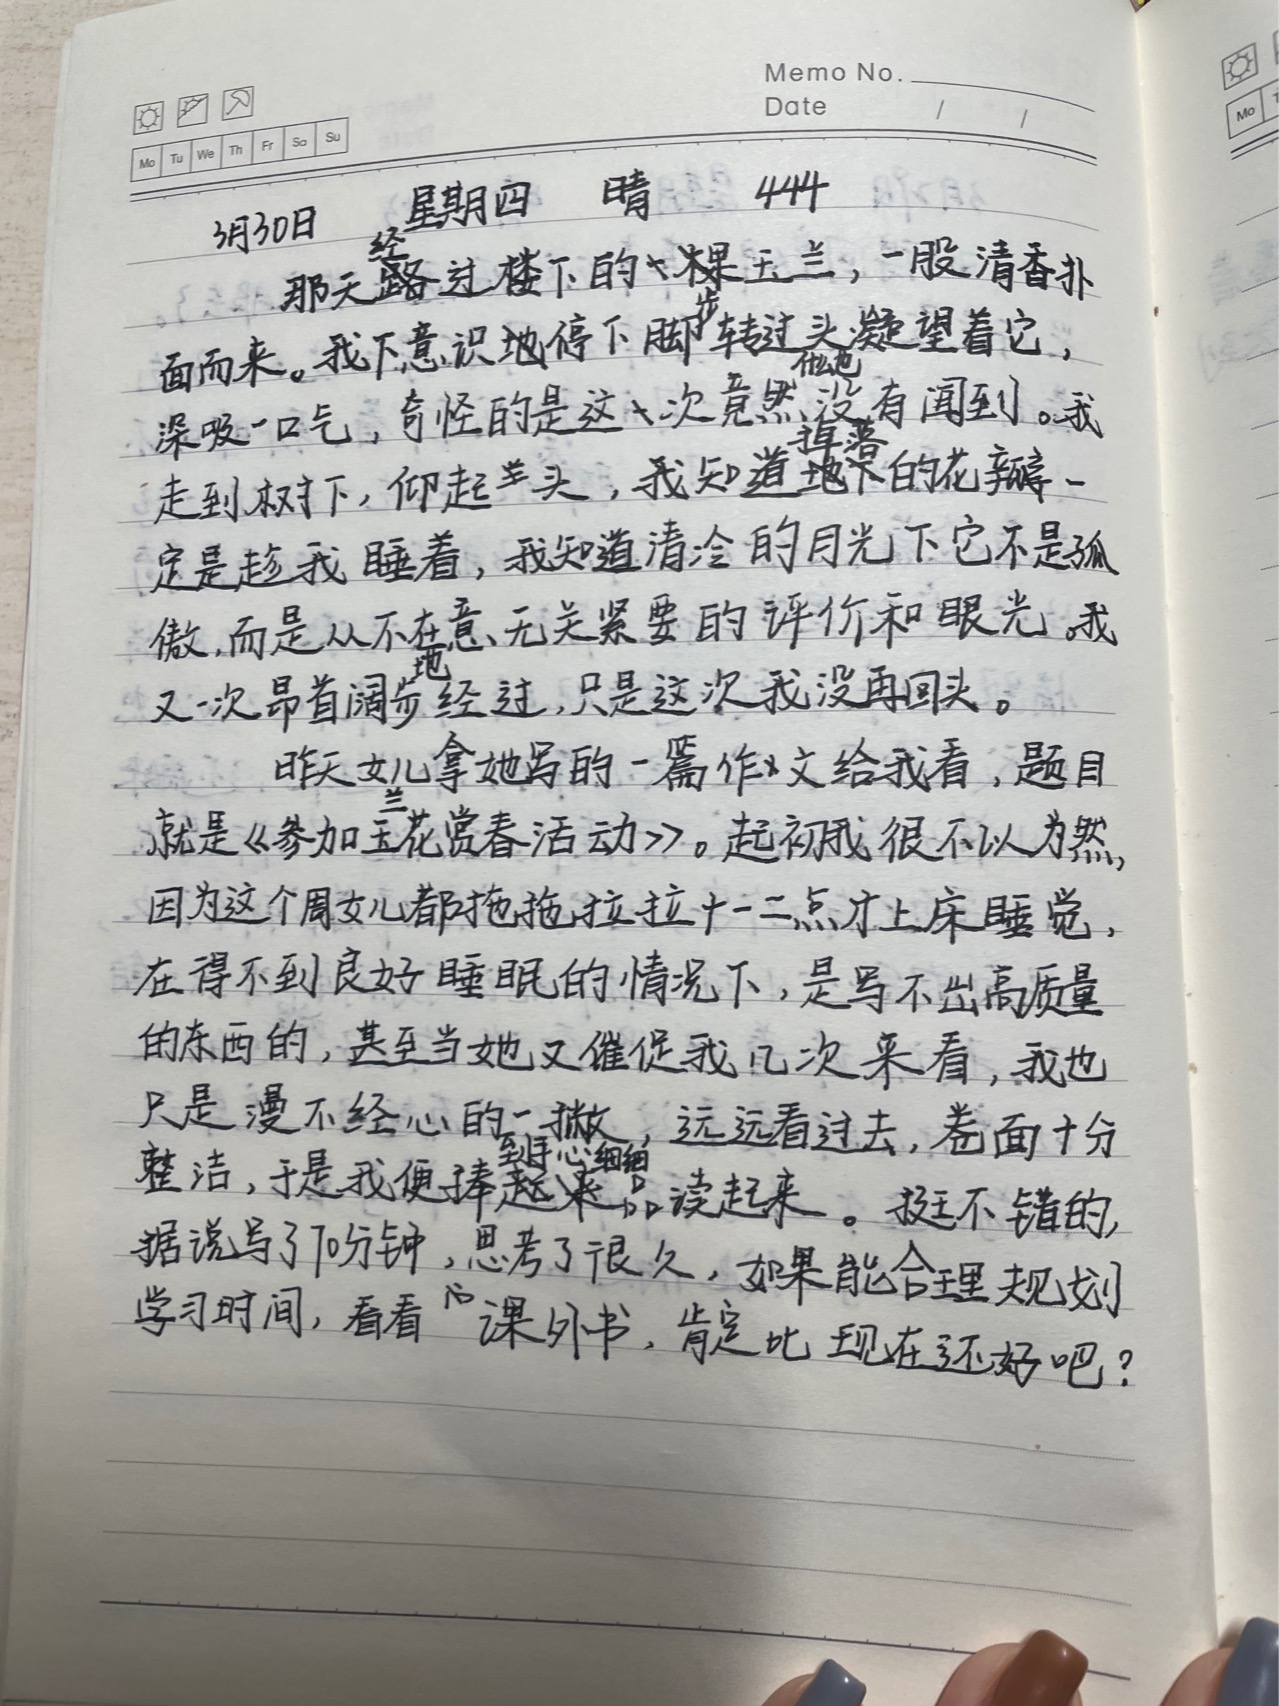 Memo No.
Date / /
Mo Tu We Th Fr Sa Su
Mo
3月30日 星期四 晴 444
那天经路过楼下的一棵玉兰，一股清香扑
面而来。我下意识地停下脚步转过头凝望着它，
深吸一口气，奇怪的是这一次竟然他也没有闻到。我
走到树下，仰起头，我知道掉落地下的花瓣一
定是趁我睡着，我知道清冷的月光下它不是孤
傲，而是从不在意无关紧要的评价和眼光。我
又一次昂首阔步地经过，只是这次我没再回头。
昨天女儿拿她写的一篇作文给我看，题目
就是《参加玉兰花赏春活动》。起初我很不以为然，
因为这个周女儿都拖拖拉拉十一二点才上床睡觉，
在得不到良好睡眠的情况下，是写不出高质量
的东西的，甚至当她又催促我几次来看，我也
只是漫不经心的一撇，远远看过去，卷面十分
整洁，于是我便捧起来到手心细细品读起来。挺不错的，
据说写了70分钟，思考了很久，如果能合理规划
学习时间，看看课外书，肯定比现在还好吧？